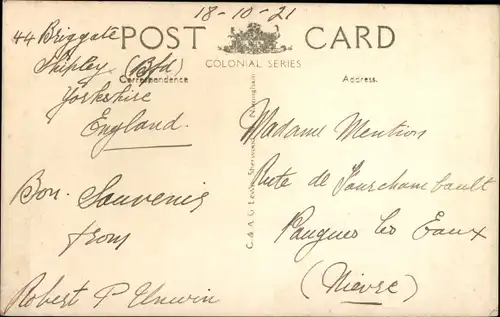 18-10-21
POST CARD
COLONIAL SERIES
Correspondence
Address.
44 Briggate
Shipley (Bfd)
Yorkshire
England.
Bon Souvenir
from
Robert P Unwin
C. & A.G. Lewis, Sherwood, Nottingham
Madame Mention
Rute de Fourchambault
Pougues les Eaux
(Nièvre)